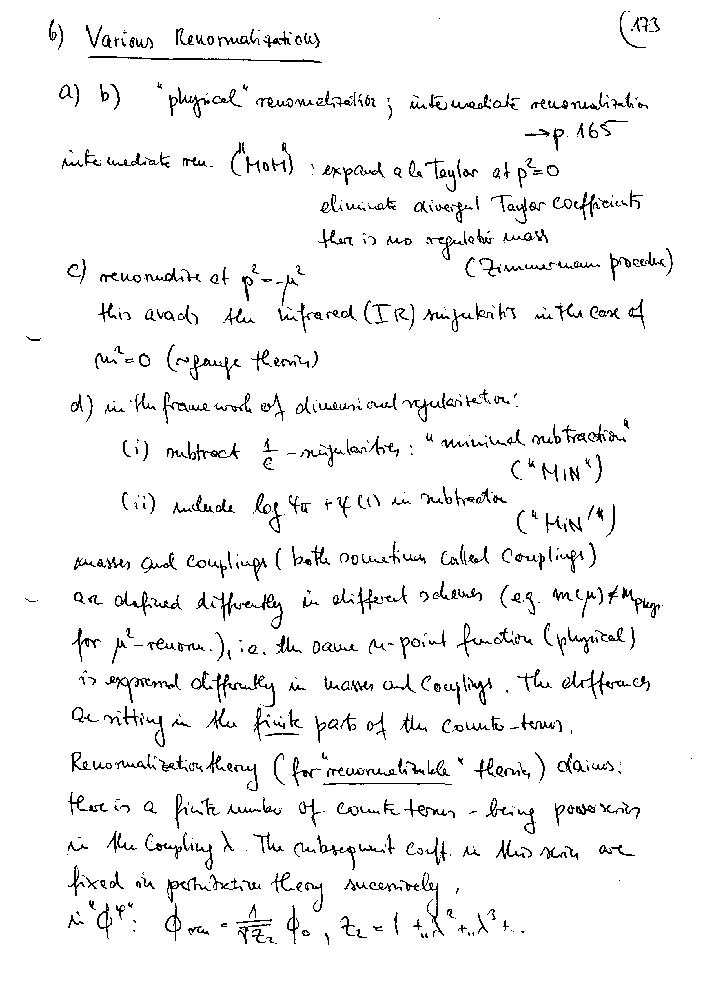 6) Various Renormalizations (173
a) b) "physical" renormalization ; intermediate renormalization
→ p. 165
intermediate ren. ("MOM") : expand a la Taylor at p²=0
eliminate divergent Taylor coefficients
there is no regulator mass
(Zimmermann procedure)
c) renormalize at p²=-μ²
this avoids the infrared (IR) singularities in the case of
m²=0 (~gauge theories)
d) in the framework of dimensional regularisation:
(i) subtract 1/ε - singularities : "minimal subtraction"
("MIN")
(ii) include log 4π + ψ(1) in subtraction
("MIN'")
masses and couplings (both sometimes called couplings)
are defined differently in different schemes (e.g. m(μ) ≠ m_phys.
for μ²-renorm.), i.e. the same n-point function (physical)
is expressed differently in masses and couplings. The differences
are sitting in the finite parts of the counter-terms.
Renormalization theory (for "renormalizable" theories) claims:
there is a finite number of counter terms - being power series
in the coupling λ. The subsequent coeff. in this series are
fixed in perturbation theory successively,
in "ϕ⁴": ϕ_ren = 1/√Z₂ ϕ₀ , Z₂ = 1 + ..λ² + ..λ³ + ..